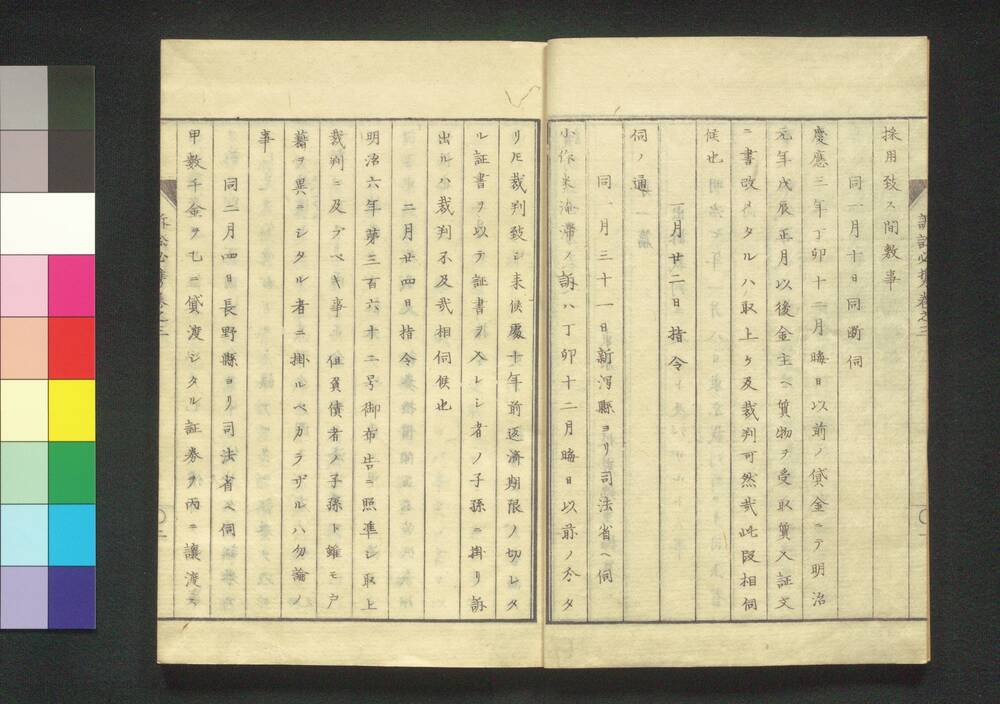 採用致ス間敷事
同一月十日同断伺
慶應三年丁卯十二月晦日以前ノ貸金ニテ明治
元年戊辰正月以後金主ヘ質物ヲ受取質入証文
ニ書改メタルハ取上ケ及裁判可然哉此段相伺
候也
一月廿二日指令
伺ノ通
同一月三十一日新潟縣ヨリ司法省ヘ伺
小作米淹滞ノ訴ハ丁卯十二月晦日以前ノ分タ
リ𪜈裁判致シ来候處十年前返済期限ノ切レタ
ル証書ヲ以テ証書ヲ入レシ者ノ子孫ニ掛リ訴
出ルハ裁判不及哉相伺候也
二月廿四日指令
明治六年第三百六十二号御布告ニ照準シ取上
裁判ニ及ブベキ事　但負債者ノ子孫ト雖モ戸
籍ヲ異ニシタル者ニ掛ルベカラザルハ勿論ノ
事
同二月四日長野縣ヨリ司法省ヘ伺
甲数千金ヲ乙ニ貸渡シタル証券ヲ丙ニ讓渡ス
訴訟必携巻之三